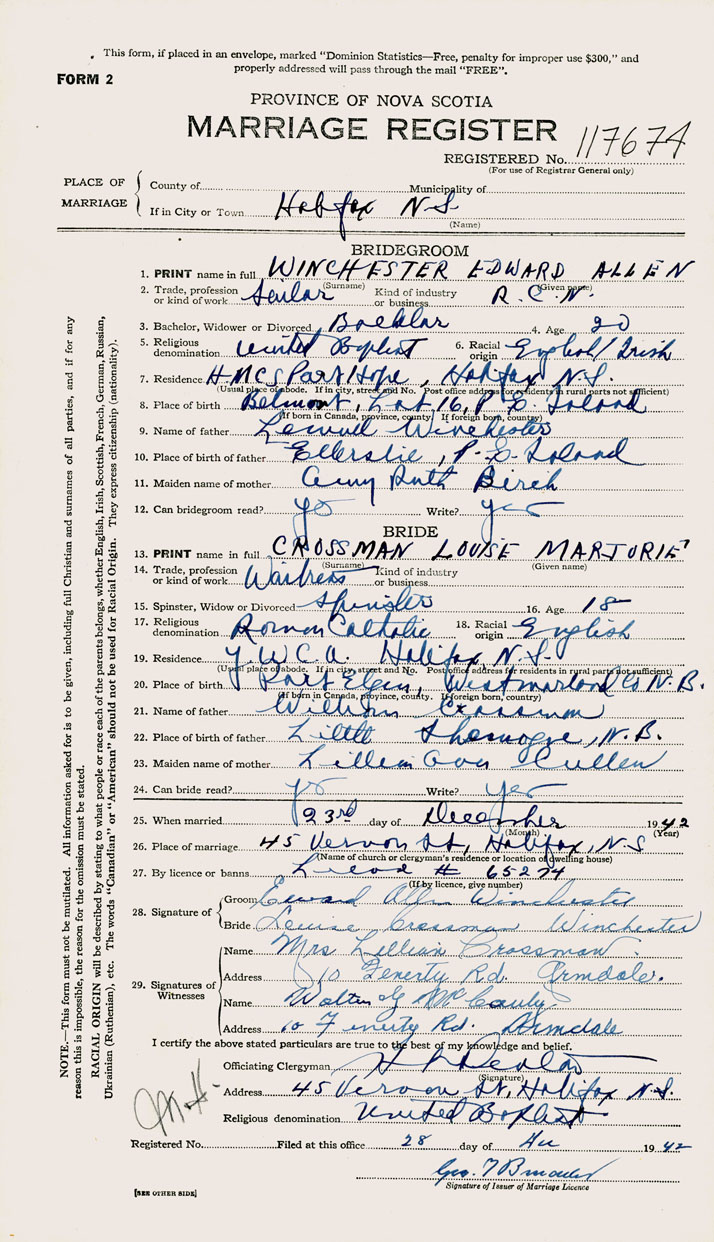 This form, if placed in an envelope, marked "Dominion Statistics—Free, penalty for improper use $300," and
properly addressed will pass through the mail "FREE".
FORM 2
PROVINCE OF NOVA SCOTIA
MARRIAGE REGISTER
REGISTERED No. 117674
(For use of Registrar General only)
PLACE OF MARRIAGE
County of Municipality of
If in City or Town Halifax N.S.
(Name)
BRIDEGROOM
1. PRINT name in full WINCHESTER EDWARD ALLEN
(Surname) (Given name)
2. Trade, profession or kind of work Sailor Kind of industry or business R.C.N.
3. Bachelor, Widower or Divorced Bachelor 4. Age 20
5. Religious denomination United Baptist 6. Racial origin English/Irish
7. Residence H.M.C.S Part Hope, Halifax N.S.
(Usual place of abode. If in city, street and No. Post office address for residents in rural parts not sufficient)
8. Place of birth Belmont, Lot 16, P.E. Island
(If born in Canada, province, county. If foreign born, country)
9. Name of father Lemuel Winchester
10. Place of birth of father Ellerslie, P.E. Island
11. Maiden name of mother Amy Ruth Birch
12. Can bridegroom read? yes Write? yes
BRIDE
13. PRINT name in full CROSSMAN LOUISE MARJORIE
(Surname) (Given name)
14. Trade, profession or kind of work Waitress Kind of industry or business
15. Spinster, Widow or Divorced Spinster 16. Age 18
17. Religious denomination Roman Catholic 18. Racial origin English
19. Residence Y.W.C.A. Halifax, N.S.
(Usual place of abode. If in city, street and No. Post office address for residents in rural parts not sufficient)
20. Place of birth Port Elgin, Westmorland Co N.B.
(If born in Canada, province, county. If foreign born, country)
21. Name of father William Crossman
22. Place of birth of father Little Shemogue, N.B.
23. Maiden name of mother Lillian Cullen
24. Can bride read? yes Write? yes
25. When married 23rd day of December 1942
(Month) (Year)
26. Place of marriage 45 Vernon St, Halifax, N.S
(Name of church or clergyman's residence or location of dwelling house)
27. By licence or banns # 65274
(If by licence, give number)
28. Signature of
Groom Edward Allen Winchester
Bride Louise Crossman Winchester
29. Signatures of Witnesses
Name Mrs Lillian Crossman
Address 10 Fenerty Rd. Armdale.
Name Walter G McCauly
Address 10 Fenerty Rd. Armdale
I certify the above stated particulars are true to the best of my knowledge and belief.
Officiating Clergyman
(Signature)
Address 45 Vernon St, Halifax N.S.
Religious denomination United Baptist
Registered No. Filed at this office 28 day of 1942
Geo.
Signature of Issuer of Marriage Licence
[SEE OTHER SIDE]
NOTE.—This form must not be mutilated. All information asked for is to be given, including full Christian and surnames of all parties, and if for any
reason this is impossible, the reason for the omission must be stated.
RACIAL ORIGIN will be described by stating to what people or race each of the parents belongs, whether English, Irish, Scottish, French, German, Russian,
Ukrainian (Ruthenian), etc. The words "Canadian" or "American" should not be used for Racial Origin. They express citizenship (nationality).